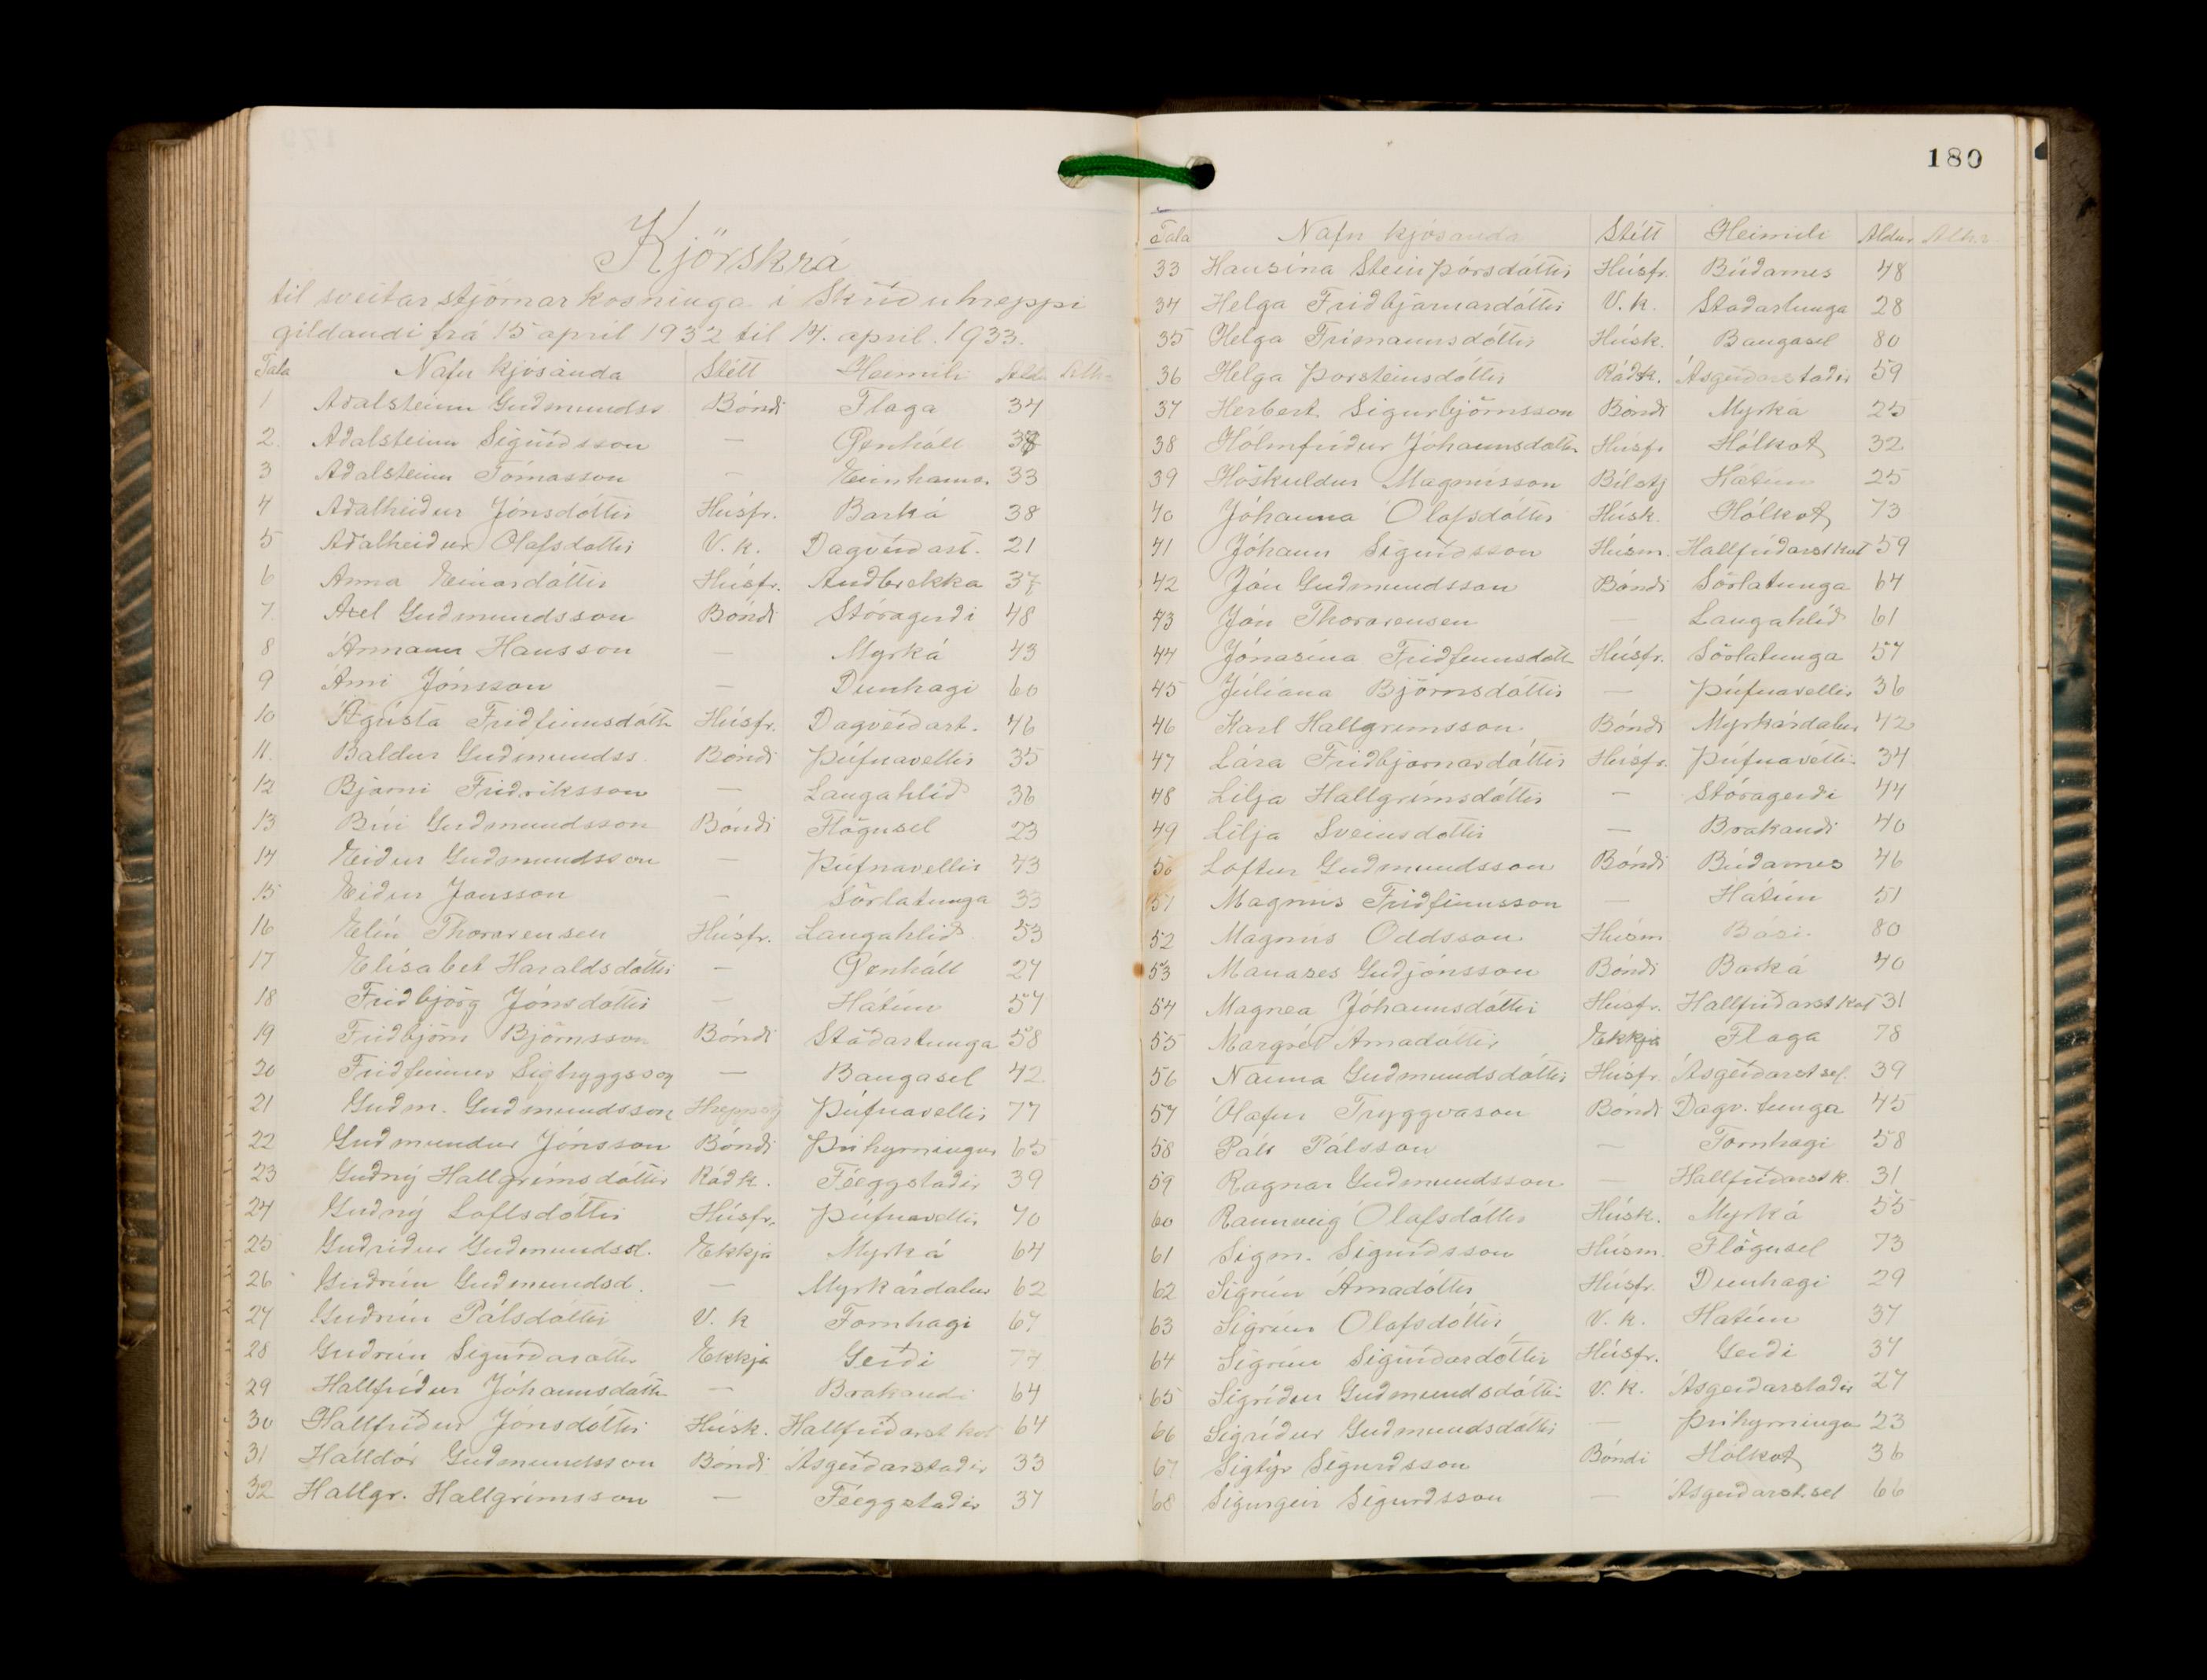 Kjörskrá
til sveitarstjórnarkosninga í Skriðuhreppi
gildandi frá 15 april 1932 til 14. april. 1933.
Tala Nafn kjósanda Stétt Heimili Ald. Ath.
1 Aðalsteinn Guðmundss. Bóndi Flaga 34
2. Aðalsteinn Sigurðsson — Öxnhóll
3 Aðalsteinn Tómasson — Einhamar. 33
4 Aðalheiður Jónsdóttir Húsfr. Barká 38
5 Aðalheiður Ólafsdóttir V. k. Dagverðart. 21
6 Anna Einarsdóttir Húsfr. Auðbrekka 37
7. Axel Guðmundsson Bóndi Stóragerði 48
8 Ármann Hansson — Myrká 43
9 Árni Jónsson — Dunhagi 60
10 Ágústa Friðfinnsdótt. Húsfr. Dagverðart. 46
11. Baldur Guðmundss. Bóndi Þúfnavellir 35
12 Bjarni Friðriksson — Langahlíð 36
13 Búi Guðmundsson Bóndi Flögusel 23
14 Eiður Guðmundsson — Þúfnavellir 43
15 Eiður Jónsson — Sörlatunga 33
16 Elín Thorarensen Húsfr. Langahlíð 53
17 Elísabet Haraldsdóttir — Öxnhóll 27
18 Friðbjörg Jónsdóttir — Hátún 57
19 Friðbjörn Björnsson Bóndi Staðartunga 58
20 Friðfinnur Sigtryggsson — Baugasel 42
21 Guðm. Guðmundsson Hreppstj Þúfnavellir 77
22 Guðmundur Jónsson Bóndi Þríhyrningur 65
23 Guðný Hallgrímsdóttir Ráðk. Féeggstaðir 39
24 Guðný Loftsdóttir Húsfr. Þúfnavellir 70
25 Guðríður Guðmundsd. Ekkja Myrká 64
26 Guðrún Guðmundsd. — Myrkárdalur 62
27 Guðrún Pálsdóttir V. k Fornhagi 67
28 Guðrún Sigurðardóttir Ekkja Gerði 77
29 Hallfríður Jóhannsdótt. — Brakandi 64
30 Hallfríður Jónsdóttir Húsk. Hallfríðarst.kot 64
31 Halldór Guðmundsson Bóndi Ásgerðarstaðir 33
32 Hallgr. Hallgrímsson — Féeggstaðir 37
180
Tala Nafn kjósanda Stétt Heimili Aldur Ath.
33 Hansína Steinþórsdóttir Húsfr. Búðarnes 48
34 Helga Friðbjarnardóttir V. k. Staðartunga 28
35 Helga Frímannsdóttir Húsk. Baugasel 80
36 Helga Þorsteinsdóttir Ráðsk. Ásgerðarstaðir 59
37 Herbert Sigurbjörnsson Bóndi Myrká 25
38 Hólmfríður Jóhannsdóttir Húsfr Hólkot 32
39 Höskuldur Magnússon Bílstj Hátún 25
40 Jóhanna Ólafsdóttir Húsk. Hólkot 73
41 Jóhann Sigurðsson Húsm. Hallfríðarst.kot 59
42 Jón Guðmundsson Bóndi Sörlatunga 64
43 Jón Thorarensen — Langahlíð 61
44 Jónasína Friðfinnsdótt. Húsfr. Sörlatunga 57
45 Júlíana Björnsdóttir — Þúfnavellir 36
46 Karl Hallgrímsson Bóndi Myrkárdalur 42
47 Lára Friðbjarnardóttir Húsfr. Þúfnavellir 34
48 Lilja Hallgrímsdóttir — Stóragerði 44
49 Lilja Sveinsdóttir — Brakandi 40
50 Loftur Guðmundsson Bóndi Búðarnes 46
51 Magnús Friðfinnsson — Hátún 51
52 Magnús Oddsson Húsm Bási 80
53 Manases Guðjónsson Bóndi Barká 40
54 Magnea Jóhannsdóttir Húsfr. Hallfríðarst.kot 31
55 Margrét Árnadóttir Ekkja Flaga 78
56 Nanna Guðmundsdóttir Húsfr. Ásgerðarst.sel. 39
57 Ólafur Tryggvason Bóndi Dagv. tunga 45
58 Páll Pálsson — Fornhagi 58
59 Ragnar Guðmundsson — Hallfríðarst k. 31
60 Rannveig Ólafsdóttir Húsk. Myrká 55
61 Sigm. Sigurðsson Húsm. Flögusel 73
62 Sigrún Árnadóttir Húsfr. Dunhagi 29
63 Sigrún Ólafsdóttir V. k. Hátún 37
64 Sigrún Sigurðardóttir Húsfr. Gerði 37
65 Sigríður Guðmundsdóttir V. k. Ásgerðarstaðir 27
66 Sigríður Guðmundsdóttir — Þríhyrningur 23
67 Sigtýr Sigurðsson Bóndi Hólkot 36
68 Sigurgeir Sigurðsson — Ásgerðarst.sel 66